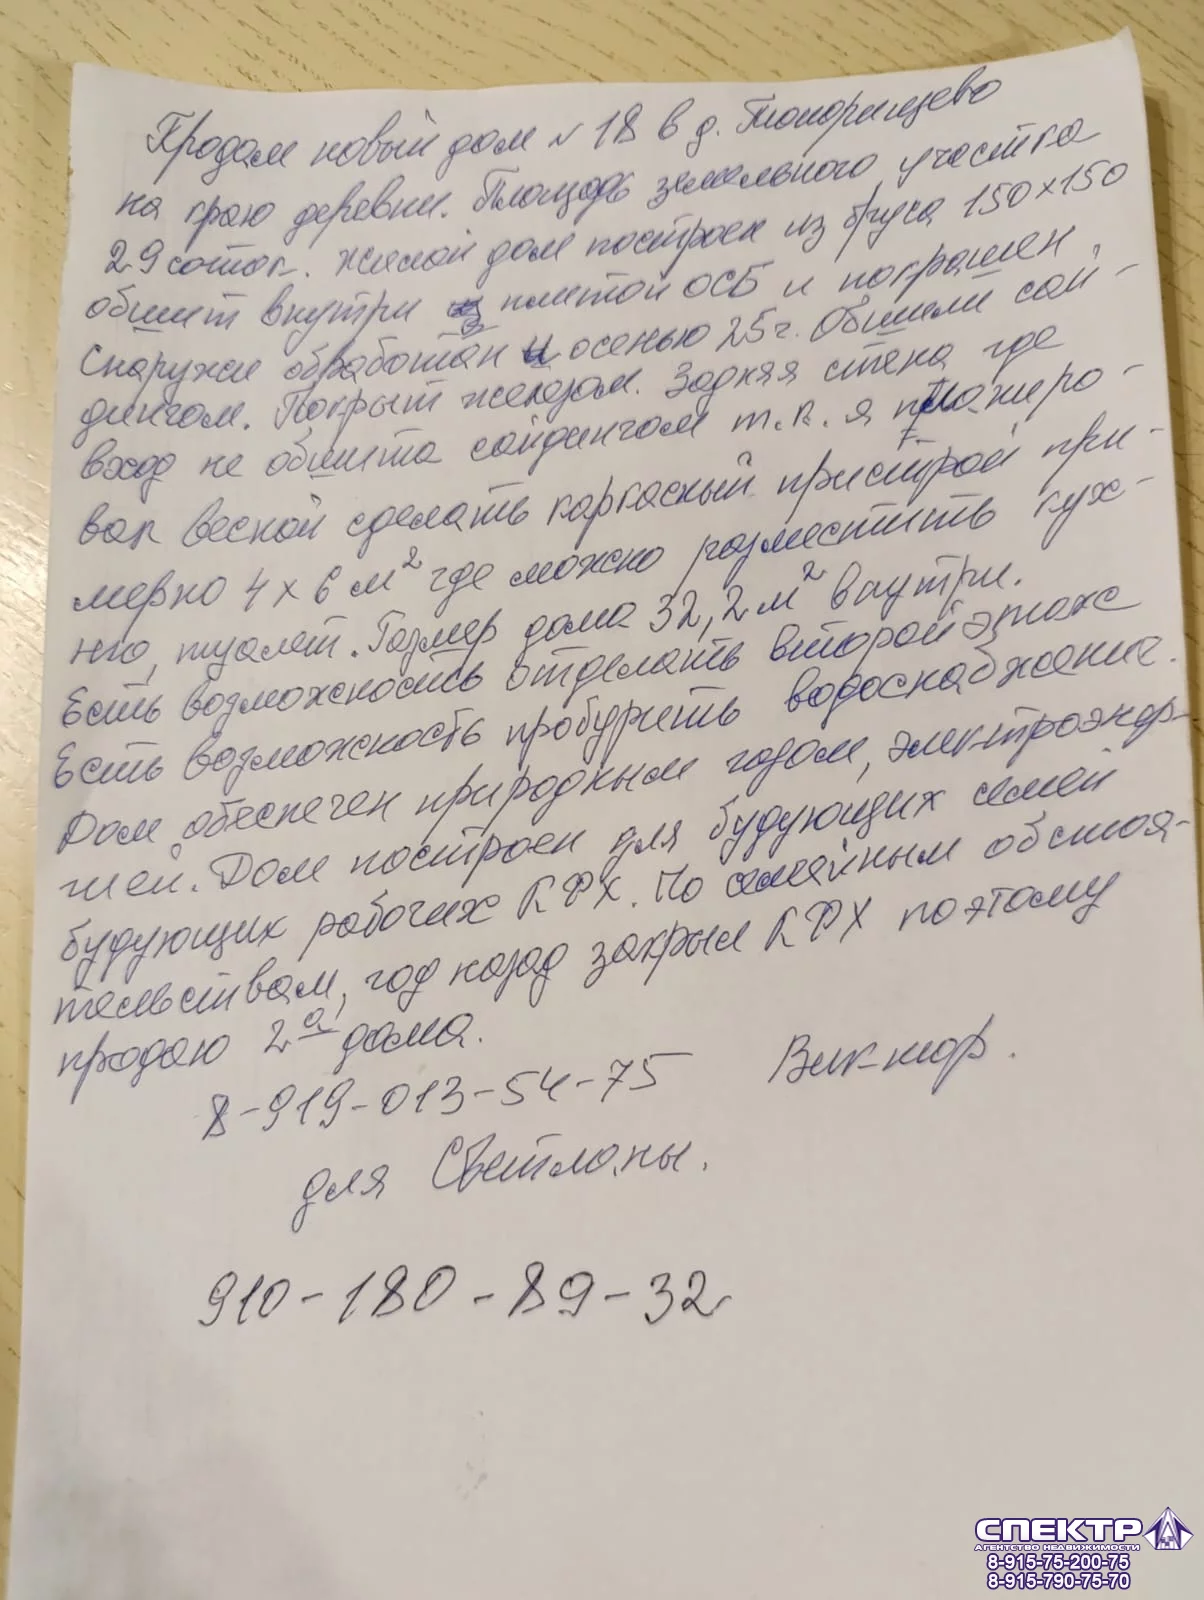 Продам новый дом № 18 в д. Топорищево
на краю деревни. Площадь земельного участка
29 соток. Жилой дом построен из бруса 150×150
обшит внутри плитой ОСБ и покрашен.
Снаружи обработан и осенью 25 г. Обшили сай-
дингом. Покрыт железом. Задняя стена где
вход не обшита сайдингом т.к. я планиро-
вал весной сделать каркасный пристрой при-
мерно 4 х 6 м² где можно разместить кух-
ню, туалет. Размер дома 32,2 м² внутри.
Есть возможность отделать второй этаж
Есть возможность пробурить водоснабжение.
Дом обеспечен природным газом, электроэнер-
гией. Дом построен для будующих семей
будующих рабочих КФХ. По семейным обстоя-
тельствам, год назад закрыл КФХ поэтому
продаю 2а дома.
8-919-013-54-75 Виктор.
для Светланы.
910-180-89-32
СПЕКТР
АГЕНТСТВО НЕДВИЖИМОСТИ
8-915-75-200-75
8-915-790-75-70